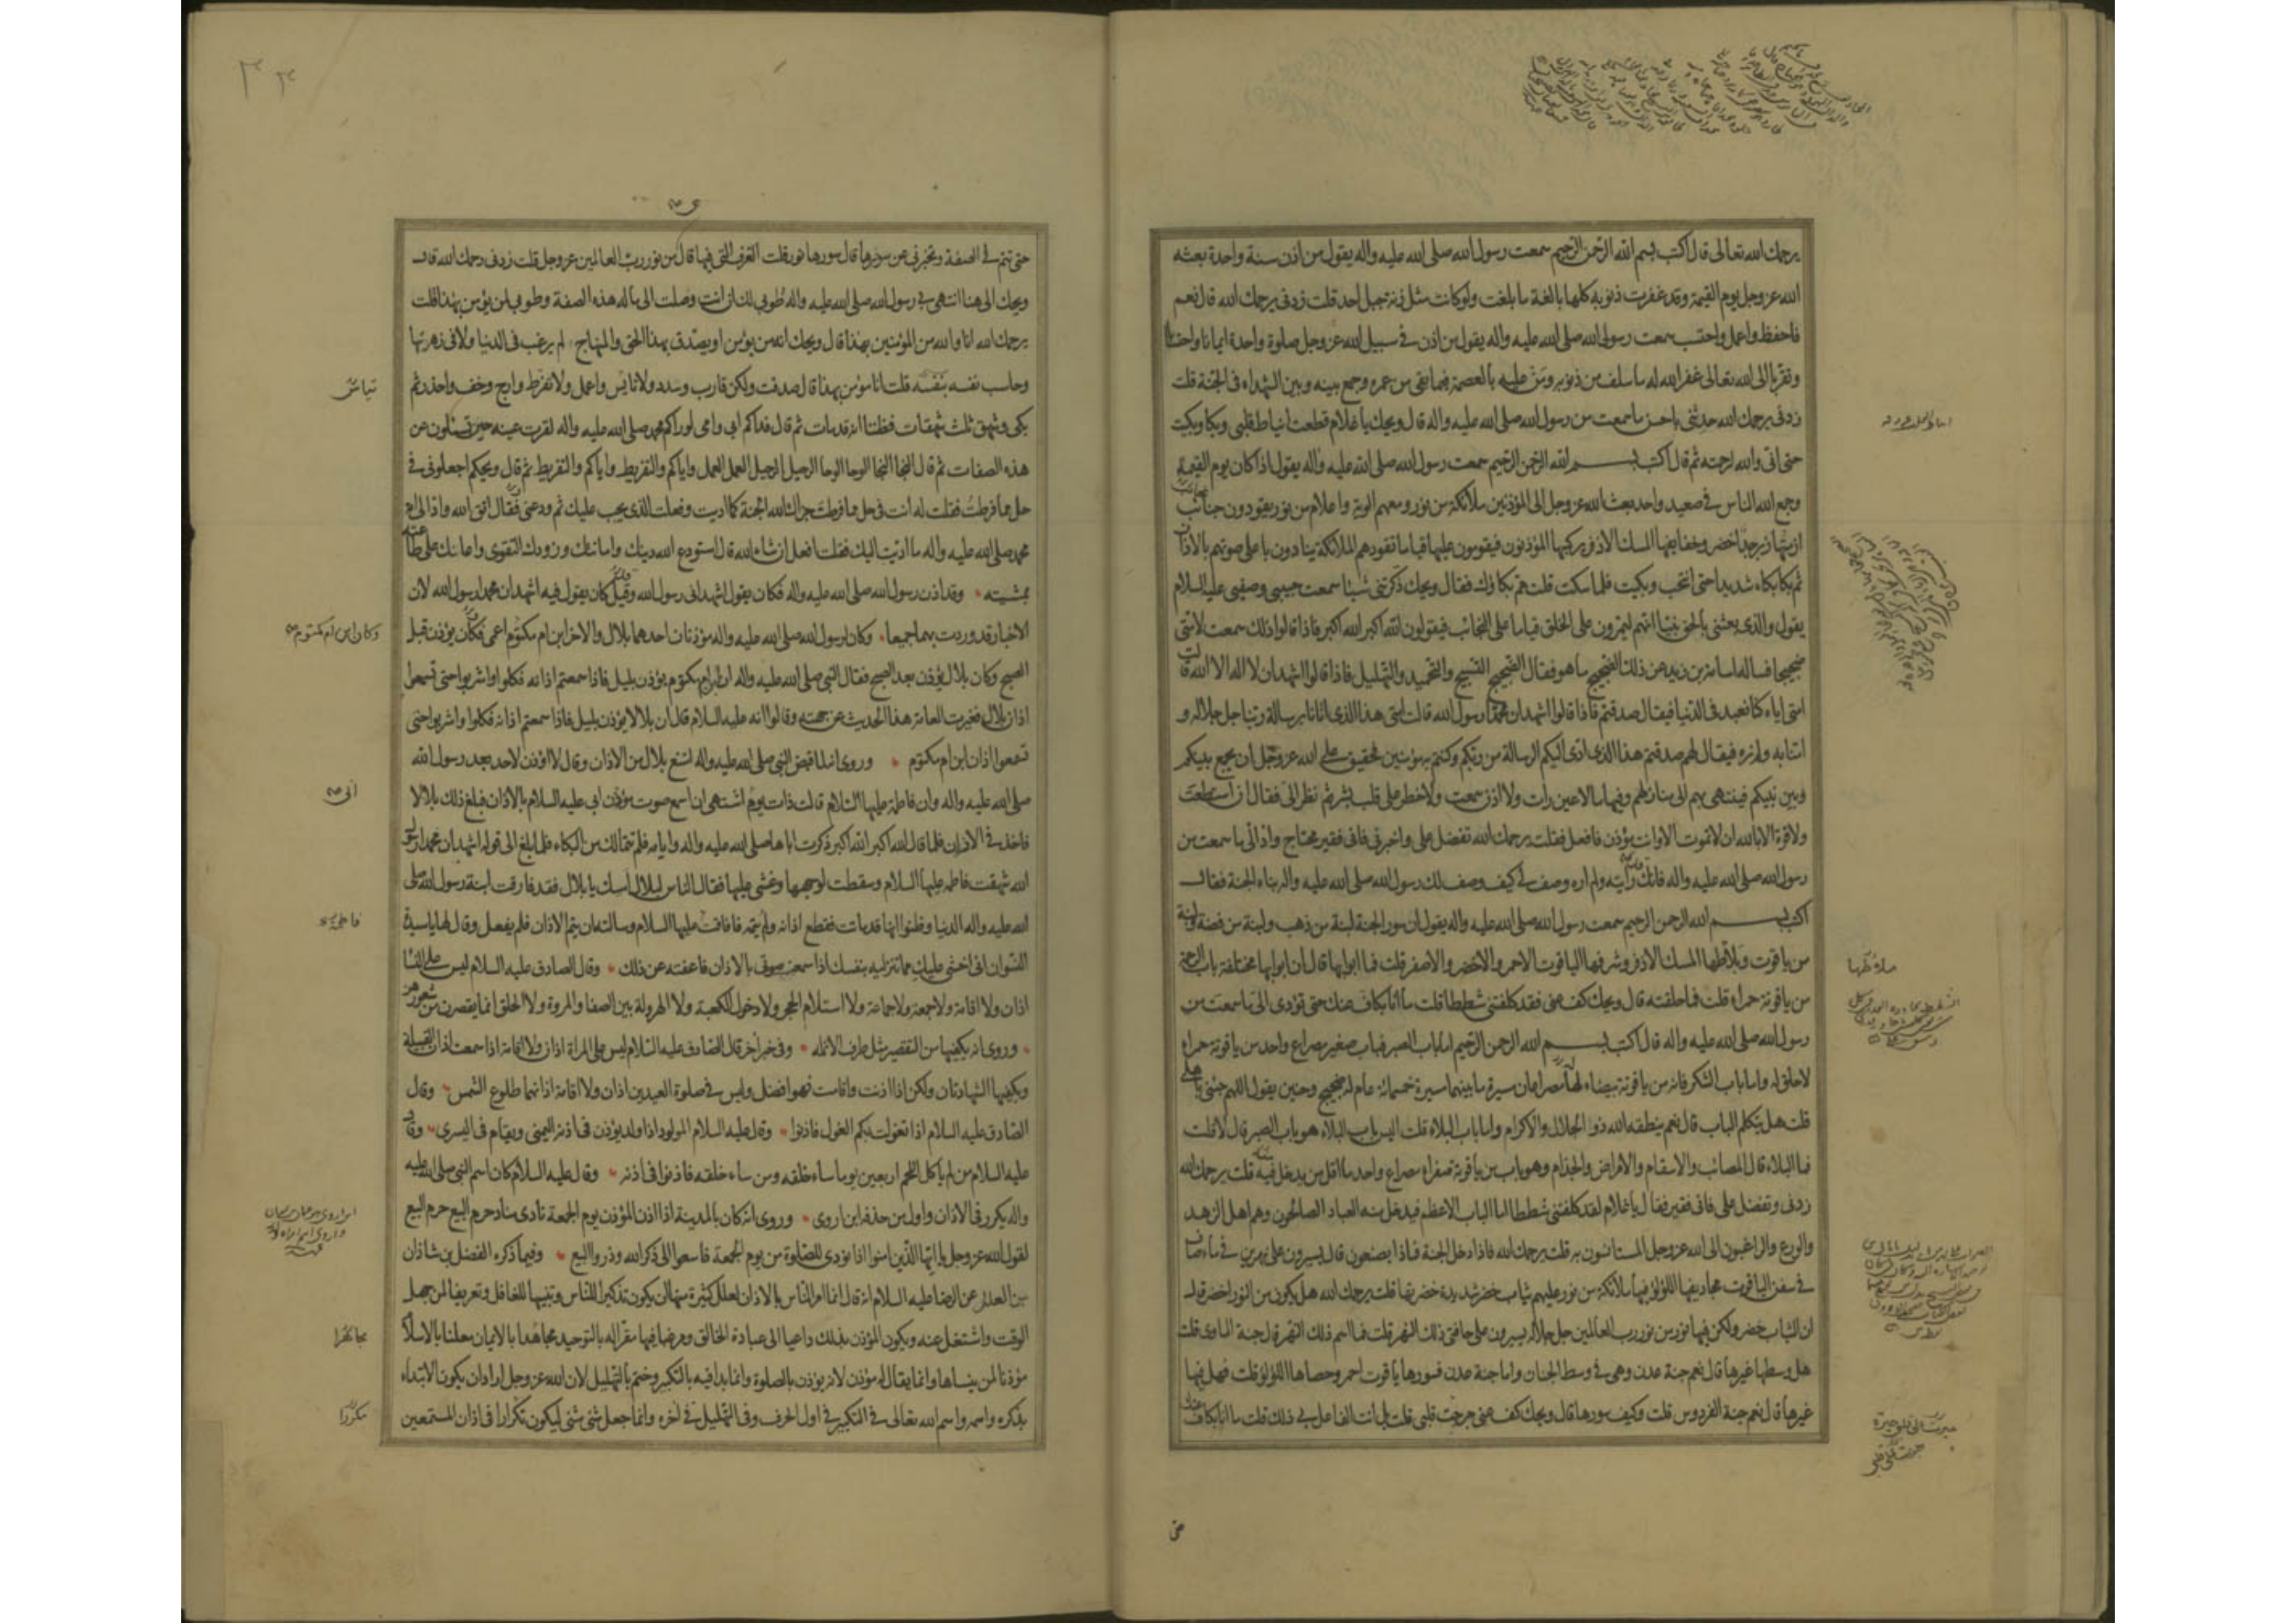 يرحمك الله تعالى قال اكتب بسم الله الرحمن الرحيم سمعت رسول الله صلى الله عليه واله يقول من اذن سنة واحدة بعثه
الله عز وجل يوم القيمة وقد غفرت ذنوبه كلها بالغة ما بلغت ولو كانت مثل زنة جبل احد قلت زدنى يرحمك الله قال نعم
فاحفظ واعمل واحتسب سمعت رسول الله صلى الله عليه واله يقول من اذن فى سبيل الله عز وجل صلوة واحدة ايمانا واحتسابا
وتقربا الى الله تعالى غفر الله له ما سلف من ذنوبه ومن عليه بالعصمة فيما بقى من عمره وجمع بينه وبين الشهداء فى الجنة قلت
زدنى يرحمك الله حدثنى باحسن ما سمعت من رسول الله صلى الله عليه واله قال ويحك يا غلام قطعت انياط قلبى وبكا وبكيت
حتى انى والله لرحمته ثم قال اكتب بسم الله الرحمن الرحيم سمعت رسول الله صلى الله عليه واله يقول اذا كان يوم القيمة
وجمع الله الناس فى صعيد واحد بعث الله عز وجل الى المؤذنين ملائكة من نور ومعهم الوية واعلام من نور يقودون جنائب
ازمتها زبرجد اخضر وخفايفها المسك الاذفر يركبها المؤذنون فيقومون عليها قياما تقودهم الملائكة ينادون باعلى صوتهم بالاذان
ثم بكا بكاء شديدا حتى انتحب وبكيت فلما سكت قلت مم بكاؤك فقال ويحك ذكرتنى شيئا سمعت حبيبى وصفيى عليه السلام
يقول والذى بعثنى بالحق نبيا انهم ليمرون على الخلق قياما على النجائب فيقولون الله اكبر الله اكبر فاذا قالوا ذلك سمعت لامتى
ضجيجا فساله اسامة بن زيد عن ذلك الضجيج ما هو فقال الضجيج التسبيح والتحميد والتهليل فاذا قالوا اشهد ان لا اله الا الله قالت
امتى اياه كنا نعبد فى الدنيا فيقال صدقتم فاذا قالوا اشهد ان محمدا رسول الله قالت امتى هذا الذى اتانا برسالة ربنا جل جلاله و
امنا به ولم نره فيقال لهم صدقتم هذا الذى ادى اليكم الرسالة من ربكم وكنتم به مؤمنين فحقيق على الله عز وجل ان يجمع بينكم
وبين نبيكم فينتهى بهم الى منازلهم وفيها ما لا عين رات ولا اذن سمعت ولا خطر على قلب بشر ثم نظر الى فقال ان استطعت
ولا قوة الا بالله ان لا تموت الا وانت مؤذن فافعل فقلت يرحمك الله تفضل على واخبرنى فانى فقير محتاج واد الى ما سمعت من
رسول الله صلى الله عليه واله فانك رايته ولم اره وصف لى كيف وصف لك رسول الله صلى الله عليه واله بناء الجنة فقال
اكتب بسم الله الرحمن الرحيم سمعت رسول الله صلى الله عليه واله يقول ان سور الجنة لبنة من ذهب ولبنة من فضة ولبنة
من ياقوت وبلاطها المسك الاذفر وشرفها الياقوت الاحمر والاخضر والاصفر قلت فما ابوابها قال ان ابوابها مختلفة باب الرحمة
من ياقوتة حمراء قلت فما حلقته قال ويحك كف عنى فقد كلفتنى شططا قلت ما انا بكاف عنك حتى تؤدى الى ما سمعت من
رسول الله صلى الله عليه واله قال اكتب بسم الله الرحمن الرحيم اما باب الصبر فباب صغير مصراع واحد من ياقوتة حمراء
لا حلق له واما باب الشكر فانه من ياقوتة بيضاء لها مصراعان مسيرة ما بينهما مسيرة خمسمائة عام له ضجيج وحنين يقول اللهم جئنى باهلى
قلت هل يتكلم الباب قال نعم ينطقه الله ذو الجلال والاكرام واما باب البلاء قلت اليس باب البلاء هو باب الصبر قال لا قلت
فما البلاء قال المصائب والاسقام والامراض والجذام وهو باب من ياقوتة صفراء مصراع واحد ما اقل من يدخل فيه قلت يرحمك الله
زدنى وتفضل على فانى فقير فقال يا غلام لقد كلفتنى شططا اما الباب الاعظم فيدخل منه العباد الصالحون وهم اهل الزهد
والورع والراغبون الى الله عز وجل المستانسون به قلت يرحمك الله فاذا دخلوا الجنة فماذا يصنعون قال يسيرون على نهرين فى ماء صاف
فى سفن الياقوت مجاديفها اللؤلؤ فيها ملائكة من نور عليهم ثياب خضر شديدة خضرتها قلت يرحمك الله هل يكون من النور اخضر قال
ان الثياب خضر ولكن فيها نور من نور رب العالمين جل جلاله يسيرون على حافتى ذلك النهر قلت فما اسم ذلك النهر قال جنة الماوى قلت
هل وسطها غيرها قال نعم جنة عدن وهى فى وسط الجنان واما جنة عدن فسورها ياقوت احمر وحصاها اللؤلؤ قلت فهل فيها
غيرها قال نعم جنة الفردوس قلت وكيف سورها قال ويحك كف عنى جرحت قلبى قلت بل انت الفاعل بى ذلك قلت ما انا بكاف عنك
حتى
حتى تتم لى الصفة وتخبرنى عن سورها قال سورها نور قلت الغرف التى فيها قال من نور رب العالمين عز وجل قلت زدنى رحمك الله قال
ويحك الى هنا انتهى بى رسول الله صلى الله عليه واله طوبى لك ان انت وصلت الى ما له هذه الصفة وطوبى لمن يؤمن بهذا قلت
يرحمك الله انا والله من المؤمنين بهذا قال ويحك انه من يؤمن او يصدق بهذا الحق والمنهاج لم يرغب فى الدنيا ولا فى زهرتها
وحاسب نفسه بنفسه قلت انا مؤمن بهذا قال صدقت ولكن قارب وسدد ولا تايس واعمل ولا تفرط وارج وخف واحذر ثم
بكى وشهق ثلث شهقات فظننا انه قد مات ثم قال فداكم ابى وامى لو راكم محمد صلى الله عليه واله لقرت عينه حين تسئلون عن
هذه الصفات ثم قال النجا النجا الوحا الوحا الرحيل الرحيل العمل العمل واياكم والتفريط واياكم والتفريط ثم قال ويحكم اجعلونى فى
حل مما فرطت فقلت له انت فى حل مما فرطت جزاك الله الجنة كما اديت وفعلت الذى يجب عليك ثم ودعنى فقال اتق الله واد الى امة
محمد صلى الله عليه واله ما اديت اليك فقلت افعل ان شاء الله قال استودع الله دينك وامانتك وزودك التقوى واعانك على طاعته
بمشيته وقد اذن رسول الله صلى الله عليه واله فكان يقول اشهد انى رسول الله وقيل كان يقول فيه اشهد ان محمدا رسول الله لان
الاخبار قد وردت بهما جميعا وكان لرسول الله صلى الله عليه واله مؤذنان احدهما بلال والاخر ابن ام مكتوم اعمى فكان يؤذن قبل
الصبح وكان بلال يؤذن بعد الصبح فقال النبى صلى الله عليه واله ان ابن ام مكتوم يؤذن بليل فاذا سمعتم اذانه فكلوا واشربوا حتى تسمعوا
اذان بلال فغيرت العامة هذا الحديث عن جهته وقالوا انه عليه السلام قال ان بلالا يؤذن بليل فاذا سمعتم اذانه فكلوا واشربوا حتى
تسمعوا اذان ابن ام مكتوم وروى انه لما قبض النبى صلى الله عليه واله امتنع بلال من الاذان وقال لا اؤذن لاحد بعد رسول الله
صلى الله عليه واله وان فاطمة عليها السلام قالت ذات يوم اشتهى ان اسمع صوت مؤذن ابى عليه السلام بالاذان فبلغ ذلك بلالا
فاخذ فى الاذان فلما قال الله اكبر الله اكبر ذكرت اباها صلى الله عليه واله وايامه فلم تتمالك من البكاء فلما بلغ الى قوله اشهد ان محمدا رسول
الله شهقت فاطمة عليها السلام وسقطت لوجهها وغشى عليها فقال الناس لبلال امسك يا بلال فقد فارقت ابنة رسول الله صلى
الله عليه واله الدنيا وظنوا انها قد ماتت فقطع اذانه ولم يتمه فافاقت عليها السلام وسالته ان يتم الاذان فلم يفعل وقال لها يا سيدة
النسوان انى اخشى عليك مما تنزلينه بنفسك اذا سمعت صوتى بالاذان فاعفته عن ذلك وقال الصادق عليه السلام ليس على النساء
اذان ولا اقامة ولا جمعة ولا جماعة ولا استلام الحجر ولا دخول الكعبة ولا الهرولة بين الصفا والمروة ولا الحلق انما يقصرن من شعورهن
وروى انه يكفيها من التقصير مثل طرف الانملة وفى خبر اخر قال الصادق عليه السلام ليس على المراة اذان ولا اقامة اذا سمعت اذان القبيلة
ويكفيها الشهادتان ولكن اذا اذنت واقامت فهو افضل وليس فى صلوة العيدين اذان ولا اقامة اذانهما طلوع الشمس وقال
الصادق عليه السلام اذا تغولت بكم الغول فاذنوا وقال عليه السلام المولود اذا ولد يؤذن فى اذنه اليمنى ويقام فى اليسرى وقال
عليه السلام من لم ياكل اللحم اربعين يوما ساء خلقه ومن ساء خلقه فاذنوا فى اذنه وقال عليه السلام كان اسم النبى صلى الله عليه
واله يكرر فى الاذان واول من حذفه ابن اروى وروى انه كان بالمدينة اذا اذن المؤذن يوم الجمعة نادى مناد حرم البيع حرم البيع
لقول الله عز وجل يا ايها الذين امنوا اذا نودى للصلوة من يوم الجمعة فاسعوا الى ذكر الله وذروا البيع وفيما ذكره الفضل بن شاذان
من العلل عن الرضا عليه السلام انه قال انما امر الناس بالاذان لعلل كثيرة منها ان يكون تذكيرا للناس وتنبيها للغافل وتعريفا لمن جهل
الوقت واشتغل عنه ويكون المؤذن بذلك داعيا الى عبادة الخالق ومرغبا فيها مقرا له بالتوحيد مجاهدا بالايمان معلنا بالاسلام
مؤذنا لمن ينساها وانما يقال له مؤذن لانه يؤذن بالصلوة وانما بدا فيه بالتكبير وختم بالتهليل لان الله عز وجل اراد ان يكون الابتداء
بذكره واسمه واسم الله تعالى فى التكبير فى اول الحرف وفى التهليل فى اخره وانما جعل مثنى مثنى ليكون تكرارا فى اذان المستمعين
وكان ابن ام مكتوم